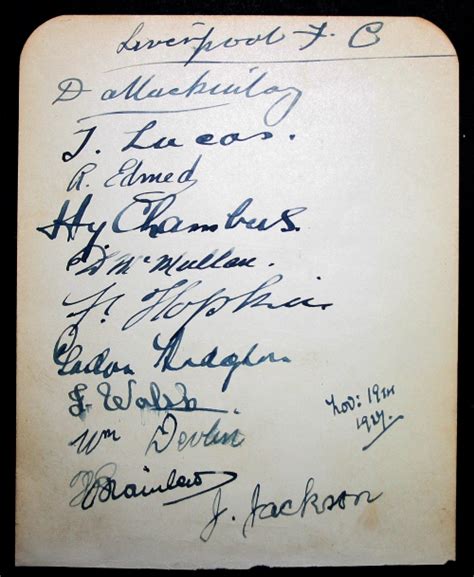 Liverpool F. C
D Mackinlay
T. Lucas.
R. Edmed
Hy Chambers.
D McMullan.
F. Hopkin
Gordon Hodgson
J. Walsh.
Nov: 19TH
1927.
Wm Devlin
J. Jackson